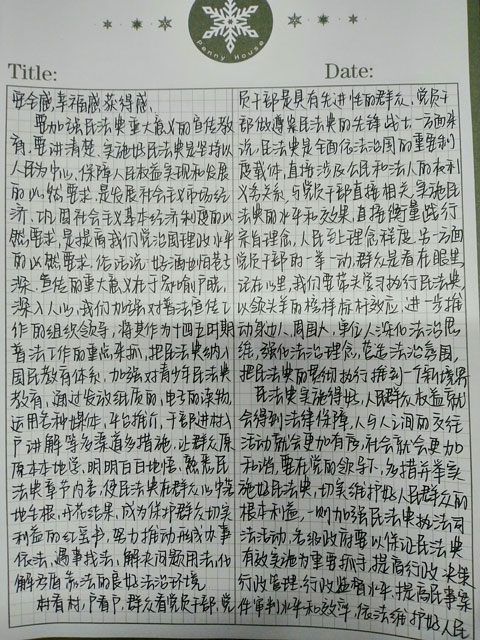 Penny House
Title:
Date:
安全感,幸福感,获得感。
要加强民法典重大意义的宣传教
育,要讲清楚,实施好民法典是坚持以
人民为中心,保障人民权益实现和发展
的必然要求,是发展社会主义市场经
济,巩固社会主义基本经济制度的必
然要求,是提高我们党治国理政水平
的必然要求。俗话说:好酒也怕巷子
深。宣传的重大意义在于家喻户晓,
深入人心,我们加强对普法宣传工
作的组织领导,将其作为十四五时期
普法工作的重点来抓,把民法典纳入
国民教育体系,加强对青少年民法典
教育,通过发放纸质的,电子的读物,
运用各种媒体,平台推介,干部进村入
户讲解等多渠道多措施,让群众原
原本本地学,明明白白地悟,熟悉民
法典章节内容,使民法典在群众心中落
地生根,开花结果,成为保护群众切实
利益的红宝书,努力推动形成办事
依法,遇事找法,解决问题用法,化
解矛盾靠法的良好法治环境
村看村,户看户,群众看党员干部,党
员干部是具有先进性的群众,党员干
部做遵崇民法典的先锋战士,一方面来
说,民法典是全面依法治国的重要制
度载体,直接涉及公民和法人的权利
义务关系,与党员干部直接相关,实施民
法典的水平和效果,直接衡量践行
宗旨理念,人民至上理念程度,另一方面
党员干部的一举一动,群众是看在眼里
记在心里,我们要带头学习执行民法典,
以领头羊的榜样标杆效应,进一步推
动身边人,周围人,单位人深化法治思
维,强化法治理念,营造法治氛围,
把民法典的贯彻执行推到一个新境界
民法典实施得好,人民群众权益就
会得到法律保障,人与人之间的交往
活动就会更加有序,社会就会更加
和谐,要在党的领导下,多措并举实
施好民法典,切实维护好人民群众的
根本利益,一则加强民法典执法司
法活动,各级政府要以保证民法典
有效实施为重要抓手,提高行政决策
行政管理,行政监督水平,提高民事案
件审判水平和效率,依法维护好人民